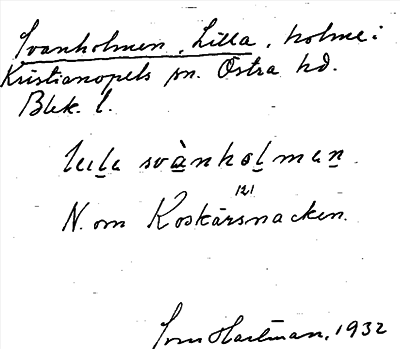 Svanholmen, Lilla, holme i
Kristianopels sn. Östra hd.
Blek. l.
svànholmen
121
N. om Koskärsnacken.
Hartman, 1932